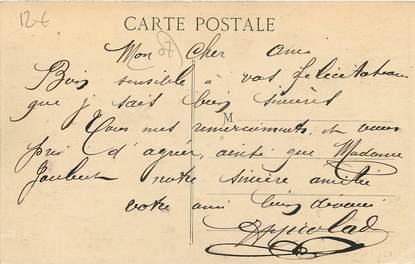 12 €
CARTE POSTALE
Mon cher ami
Bien sensible à vos félicitations
que je sais bien sincères
M
Tous mes remerciements, et vous
prie d'agréer, ainsi que Madame
Joubert notre sincère amitié
votre ami bien dévoué